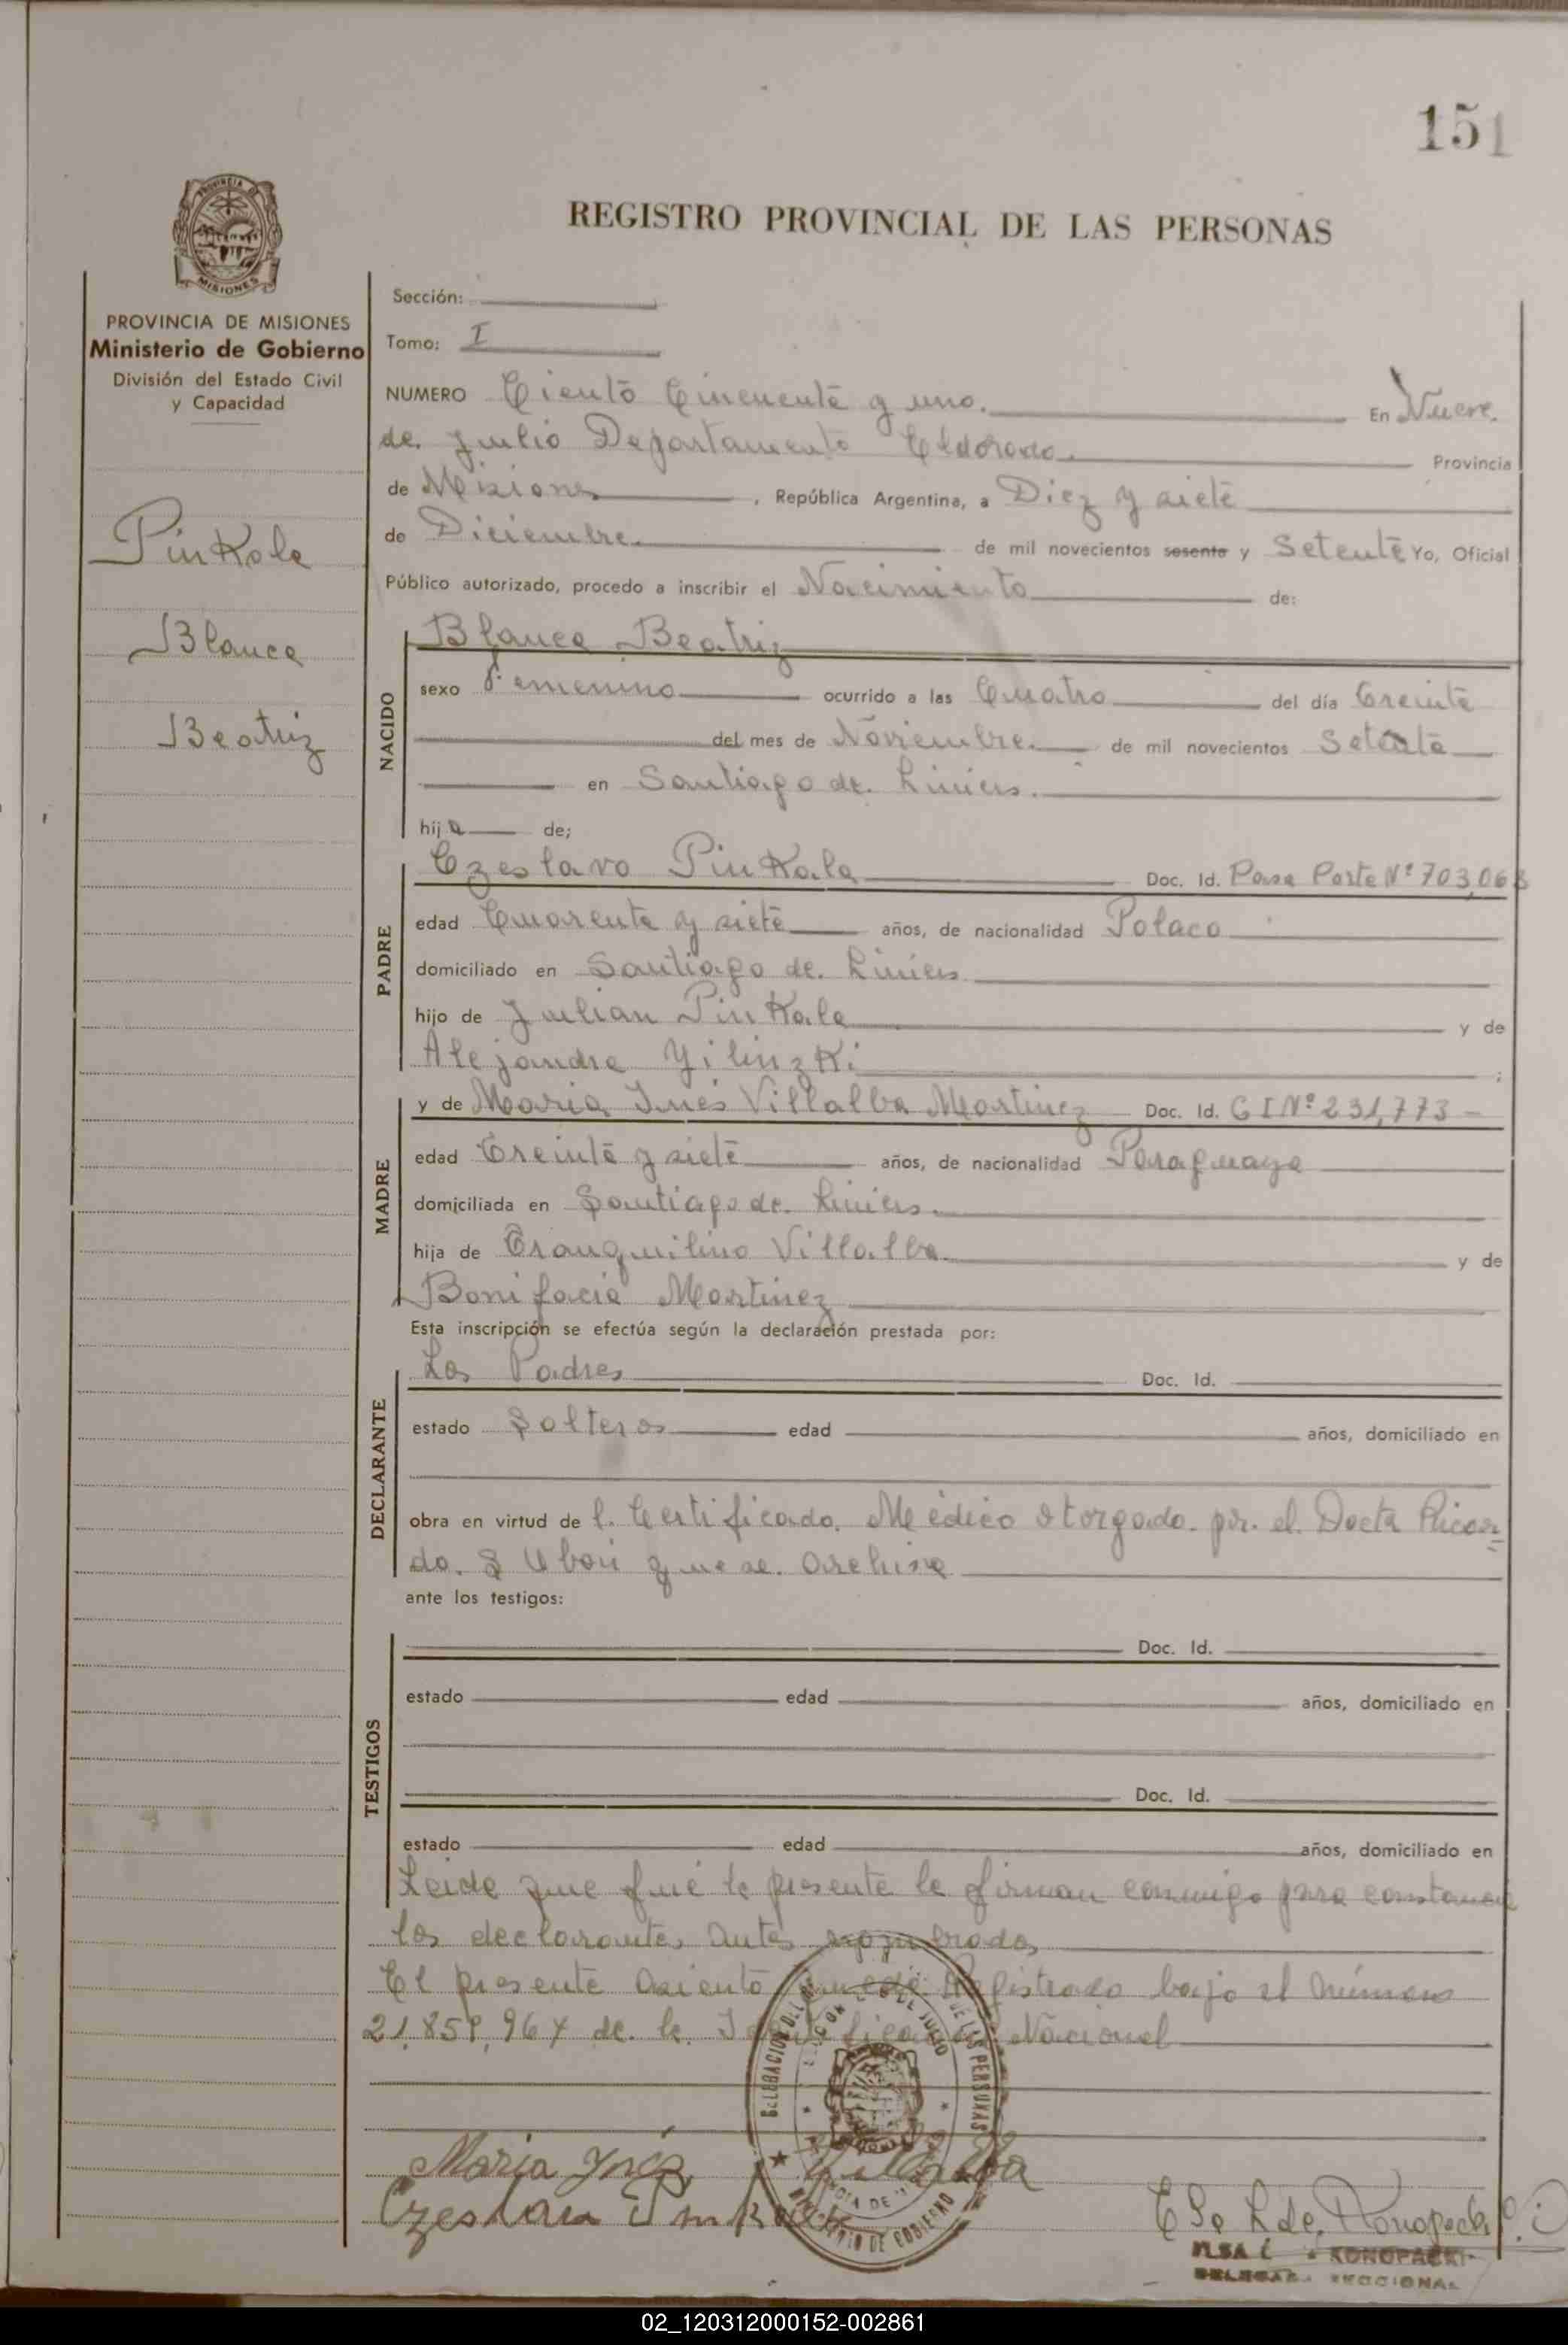 151
PROVINCIA DE MISIONES
REGISTRO PROVINCIAL DE LAS PERSONAS
PROVINCIA DE MISIONES
Ministerio de Gobierno
División del Estado Civil
y Capacidad
Pinkola
Blanca
Beatriz
Sección:
Tomo: I
NUMERO Ciento Cincuenta y uno. En Nueve
de Julio Departamento Eldorado. Provincia
de Misiones, República Argentina, a Diez y siete
de Diciembre. de mil novecientos sesenta y Setenta Yo, Oficial
Público autorizado, procedo a inscribir el Nacimiento de:
NACIDO
Blanca Beatriz
sexo Femenino ocurrido a las Cuatro del día Treinta
del mes de Noviembre. de mil novecientos Setenta
en Santiago de Liniers.
hija de;
PADRE
Czeslavo Pinkala Doc. Id. Pasa Porte Nº 703,063
edad Cuarenta y siete años, de nacionalidad Polaco
domiciliado en Santiago de Liniers
hijo de Julian Pinkala y de
Alejandra Yilinzki ;
MADRE
y de Maria Inés Villalba Martinez Doc. Id. C I Nº 231,773 -
edad Treinta y siete años, de nacionalidad Paraguaya
domiciliada en Santiago de Liniers.
hija de Tranquilino Villalba y de
Bonifacia Martinez
Esta inscripción se efectúa según la declaración prestada por:
DECLARANTE
Los Padres Doc. Id.
estado Solteros edad años, domiciliado en
obra en virtud de l. Certificado. Médico otorgado. por. el. Docta Ricar=
do. S Ubori que se. archiva
ante los testigos:
TESTIGOS
Doc. Id.
estado edad años, domiciliado en
Doc. Id.
estado edad años, domiciliado en
Leida que fué la presente la firman conmigo para constancia
los declarantes antes nombrados
El presente asiento quedo Registrado bajo el número
21,859,964 de. la. Identificación Nacional
Maria Ynés Villalba
Czeslaw Pinkala
Konopacki
KONOPACKI
SECCIONAL
MINISTERIO DE GOBIERNO
02_120312000152-002861